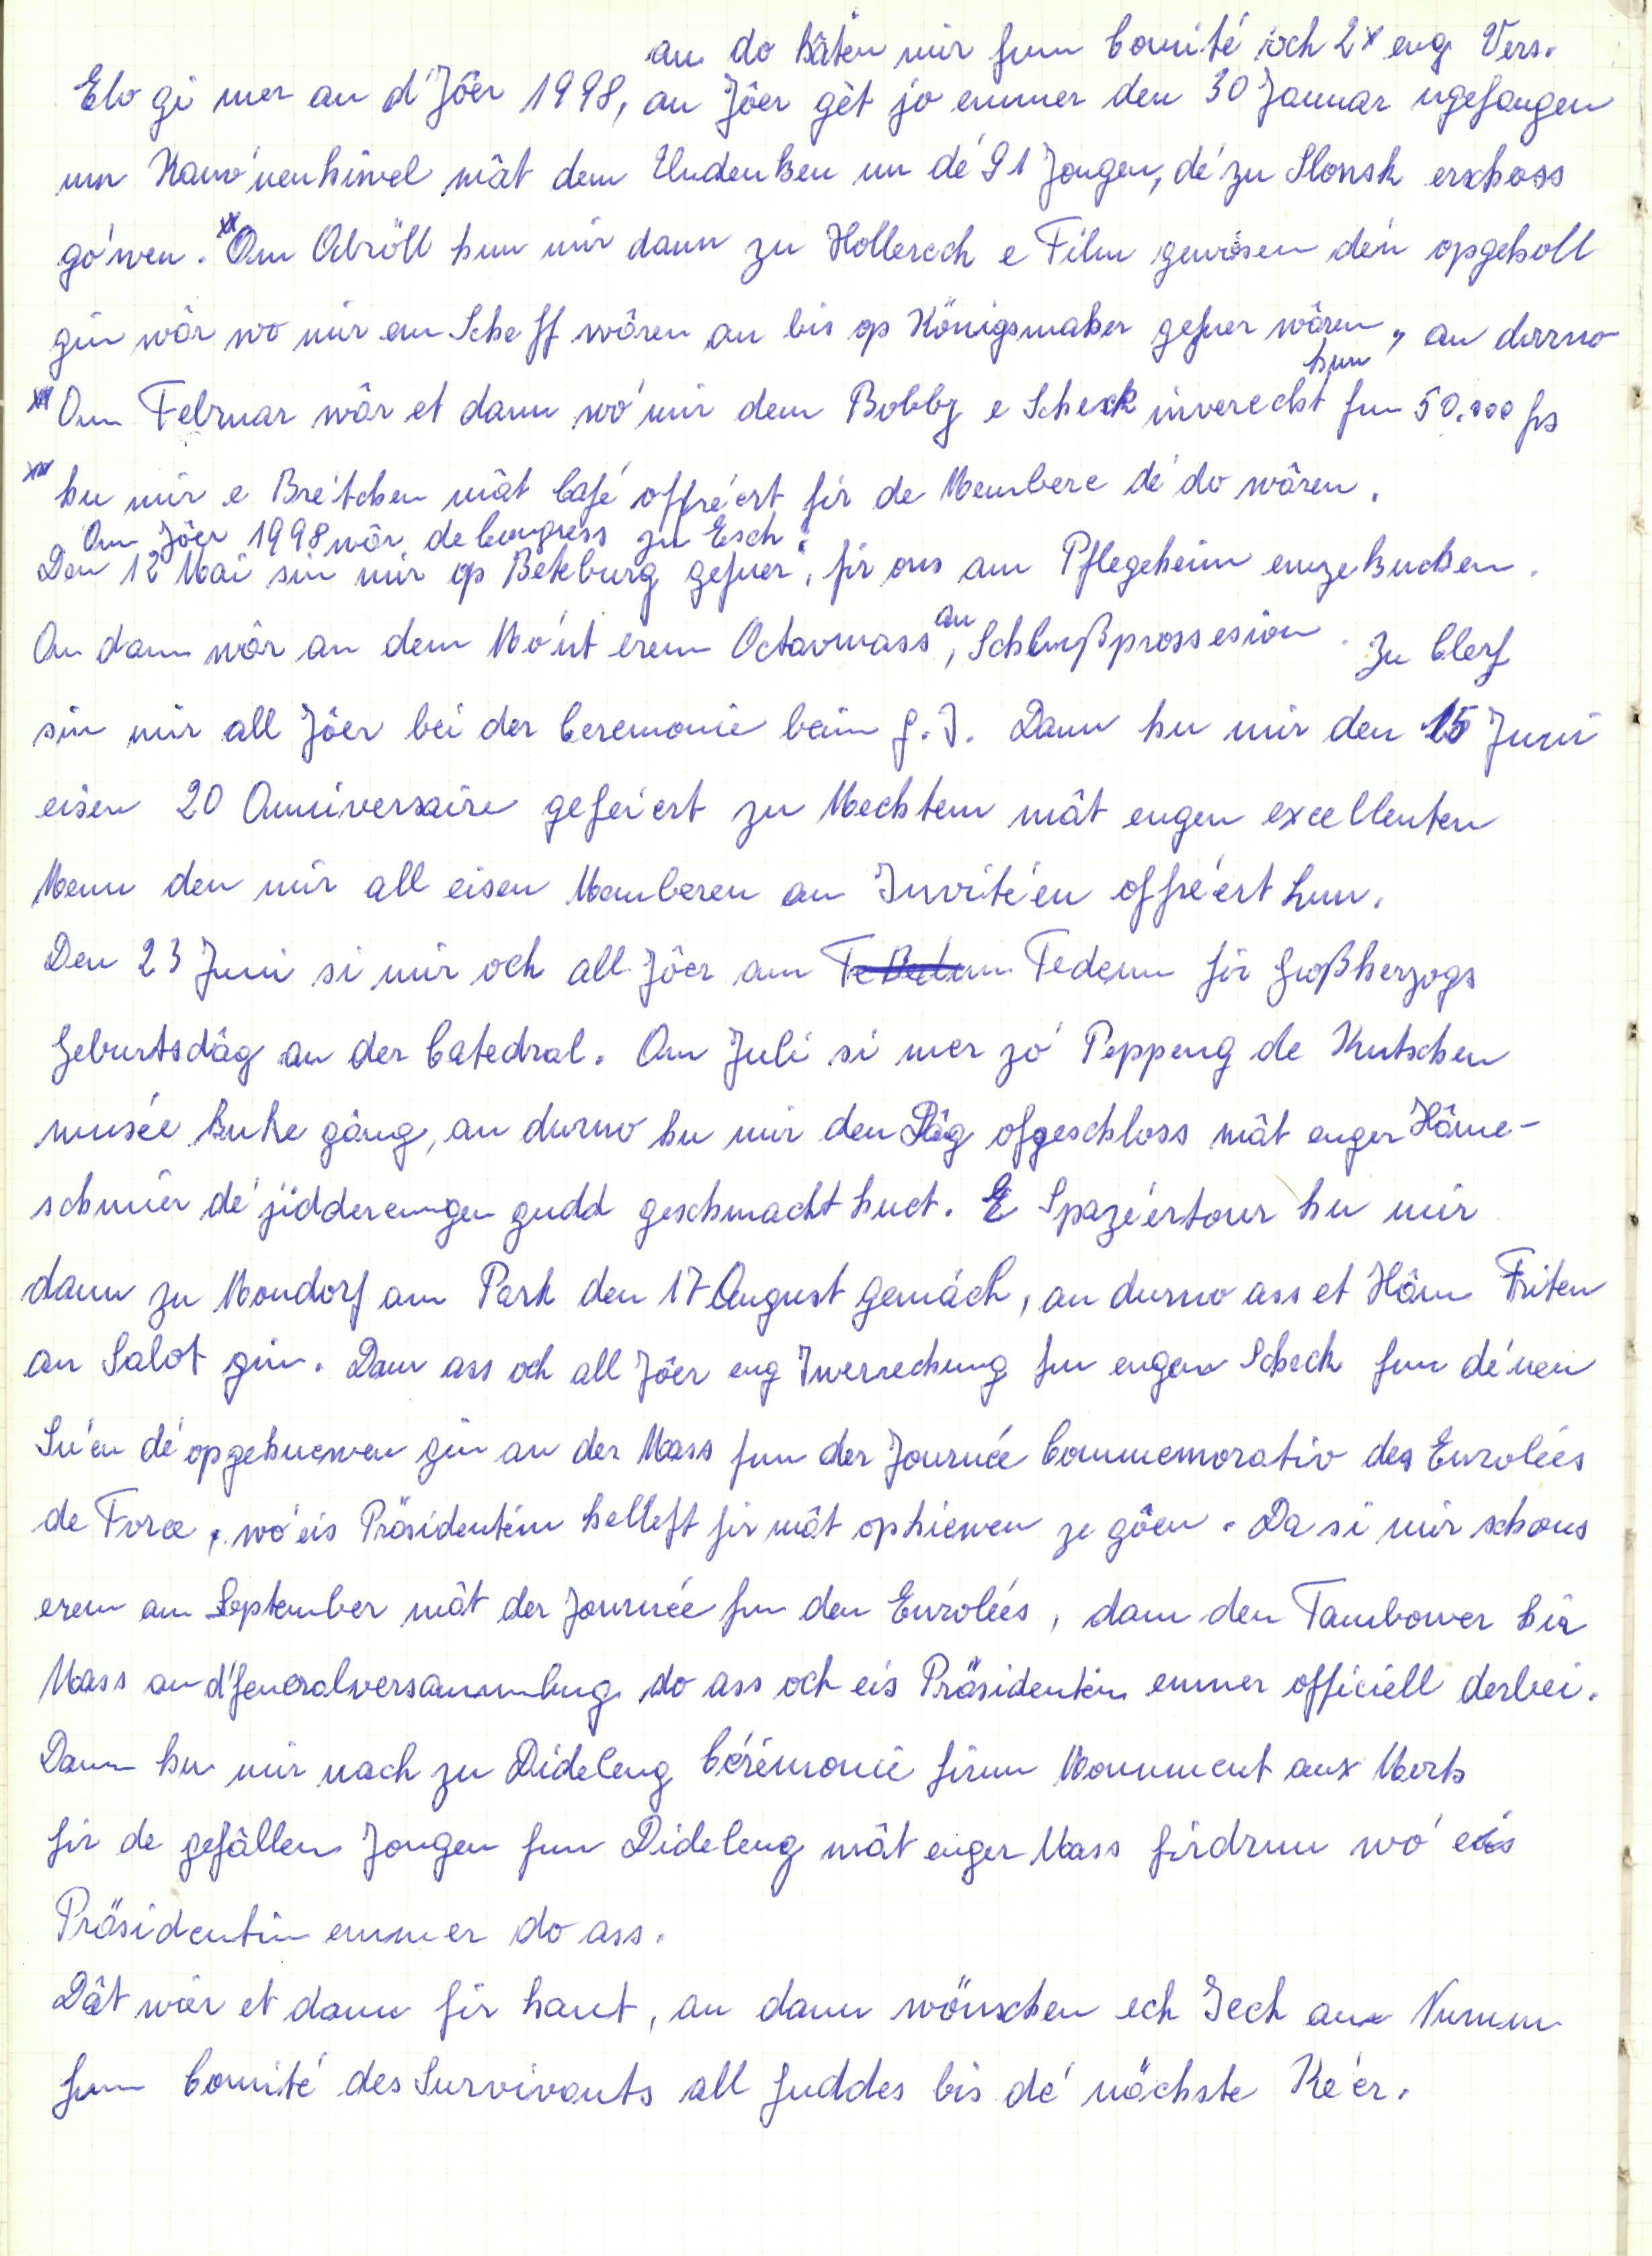 an do hâten mir fum Comité och 2x eng Vers.
Elo gi mer an d'Jôer 1998, an Jôer gèt jo emmer den 30 Januar ugefangen
um Kano'nenhiwel mât dem Undenken un dé 91 Jongen, dé zu Slonsk erschoss
go'wen. xx Am Abröll hun mir dann zu Hollerech e Film gewisen dén opgeholl
gin wôr wo mir am Scheff wôren an bis op Königsmaker gefuer wôren, an durno
xx Am Februar wôr et dann wo' mir dem Bobby e Scheck iwerecht hun fun 50.000 frs
xx hu mir e Bre'tchen mât Café offre'ert fir de Membere dé do wôren.
Am Jôer 1998 wôr de Congress zu Esch.
Den 12 Mai sin mir op Bèteburg gefuer, fir ons am Pflegeheim emzekucken.
An dann wôr an dem Mo'nt erem Octavmass, an Schlußprossesion. Zu Clerf
sin mir all Jôer bei der Ceremonie beim G.J. Dann hu mir den 15 Juni
eisen 20 Anniversaire gefeiert zu Mechtem mât engen excellenten
Menu den mir all eisen Memberen an Invité'en offre'ert hun.
Den 23 Juni si mir och all Jôer am Te Deum Tedeum fir Großherzogs
Geburtsdâg an der Catedral. Am Juli si mer zo' Peppeng de Kutschen
musée kuke gâng, an durno hu mir den Dâg ofgeschloss mât enger Hâme-
schmier dé jidderengen gudd geschmacht huet. E Spazéertour hu mir
dann zu Mondorf am Park den 17 August gemâch, an durno ass et Hâm Friten
an Salot gin. Dann ass och all Jôer eng Iwerrechung fun engem Scheck fun dé'nen
Su'en dé opgehuewen gin an der Mass fun der Journée Commemorativ des Enrolées
de Force, wo' eis Präsidentin helleft fir mât ophiewen ze gôen. Da si mir schons
erem am September mât der Journée fun den Enrolées, dann den Tambouer hir
Mass an d'Generalversammlung do ass och eis Präsidentin emmer officiell derbei.
Dann hu mir nach zu Dideleng Cérémonie firum Monument aux Morts
fir de gefâllen Jongen fun Dideleng mât enger Mass firdrun wo' eis
Präsidentin emmer do ass.
Dât wôr et dann fir haut, an dann wönschen ech Iech am Numm
fum Comité des Survivants all Guddes bis dé nächste Ke'er.